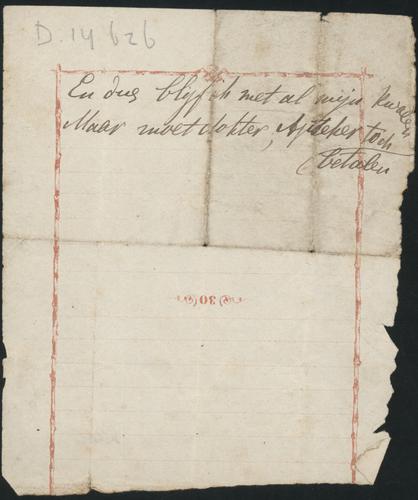 D.14626
En dus blijf ik met al mijn kwalen
Maar moet dokter, Aptheker toch
betalen
30